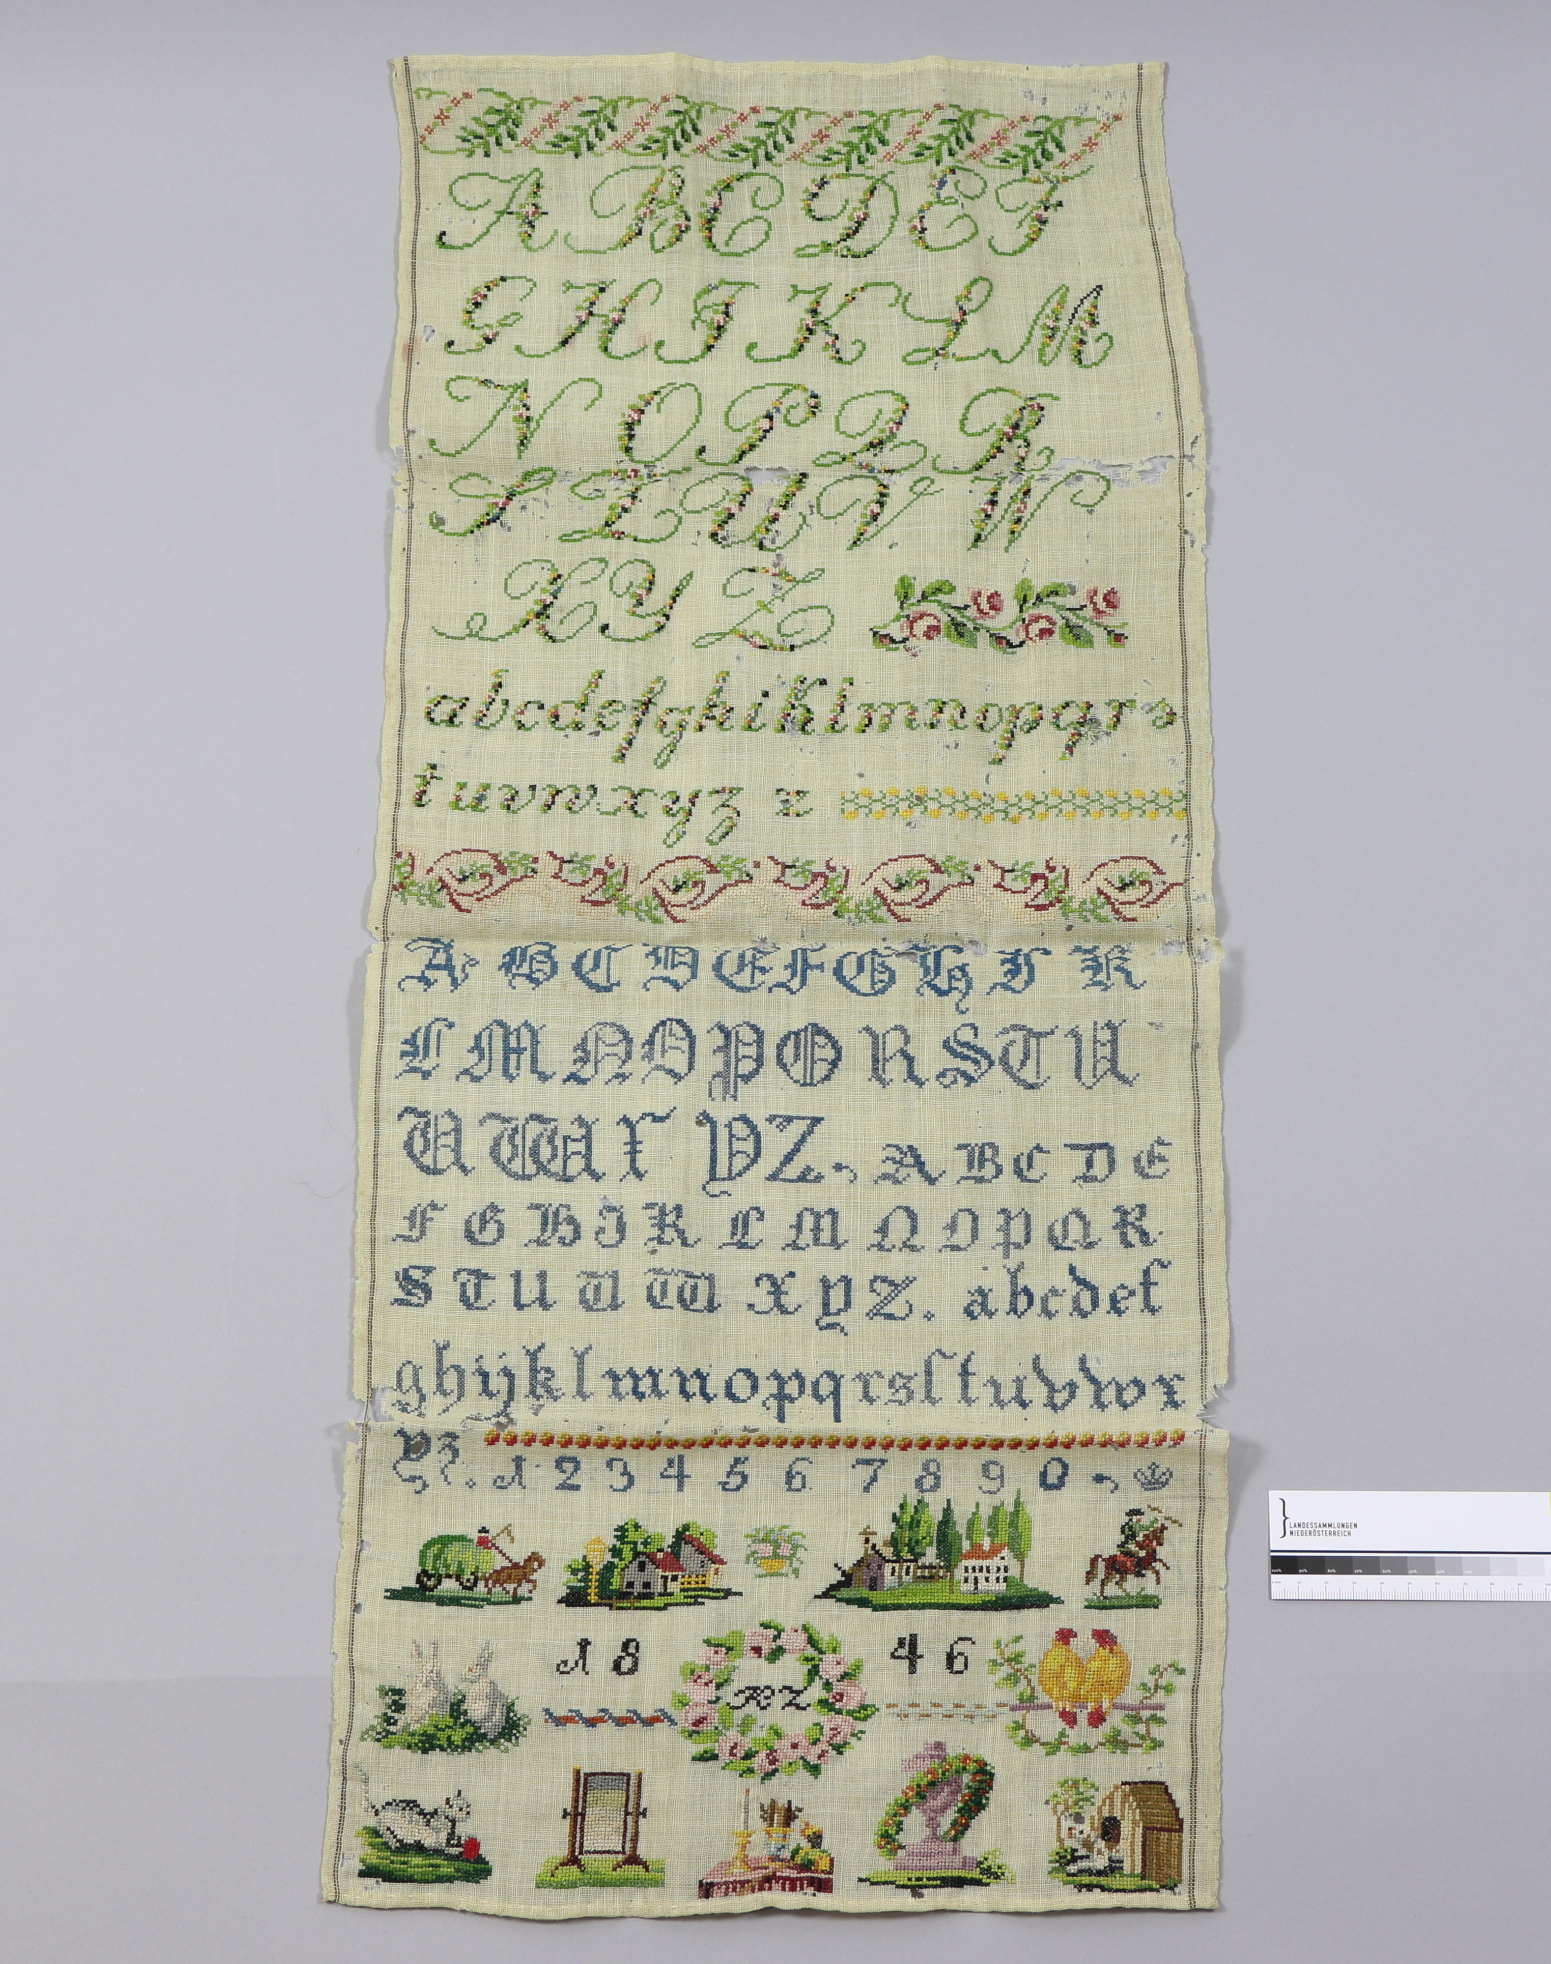 A B C D E F
G H I K L M
N O P Q R
S T U V W
X Y Z
a b c d e f g h i k l m n o p q r s
t u v w x y z z
A B C D E F G H I K
L M N O P Q R S T U
V W X Y Z , A B C D E
F G H I K L M N O P Q R
S T U V W X Y Z . a b c d e f
g h i j k l m n o p q r s ſ t u v w x
y z . 1 2 3 4 5 6 7 8 9 0 ,
18 46
RZ
LANDESSAMMLUNGEN
NIEDERÖSTERREICH